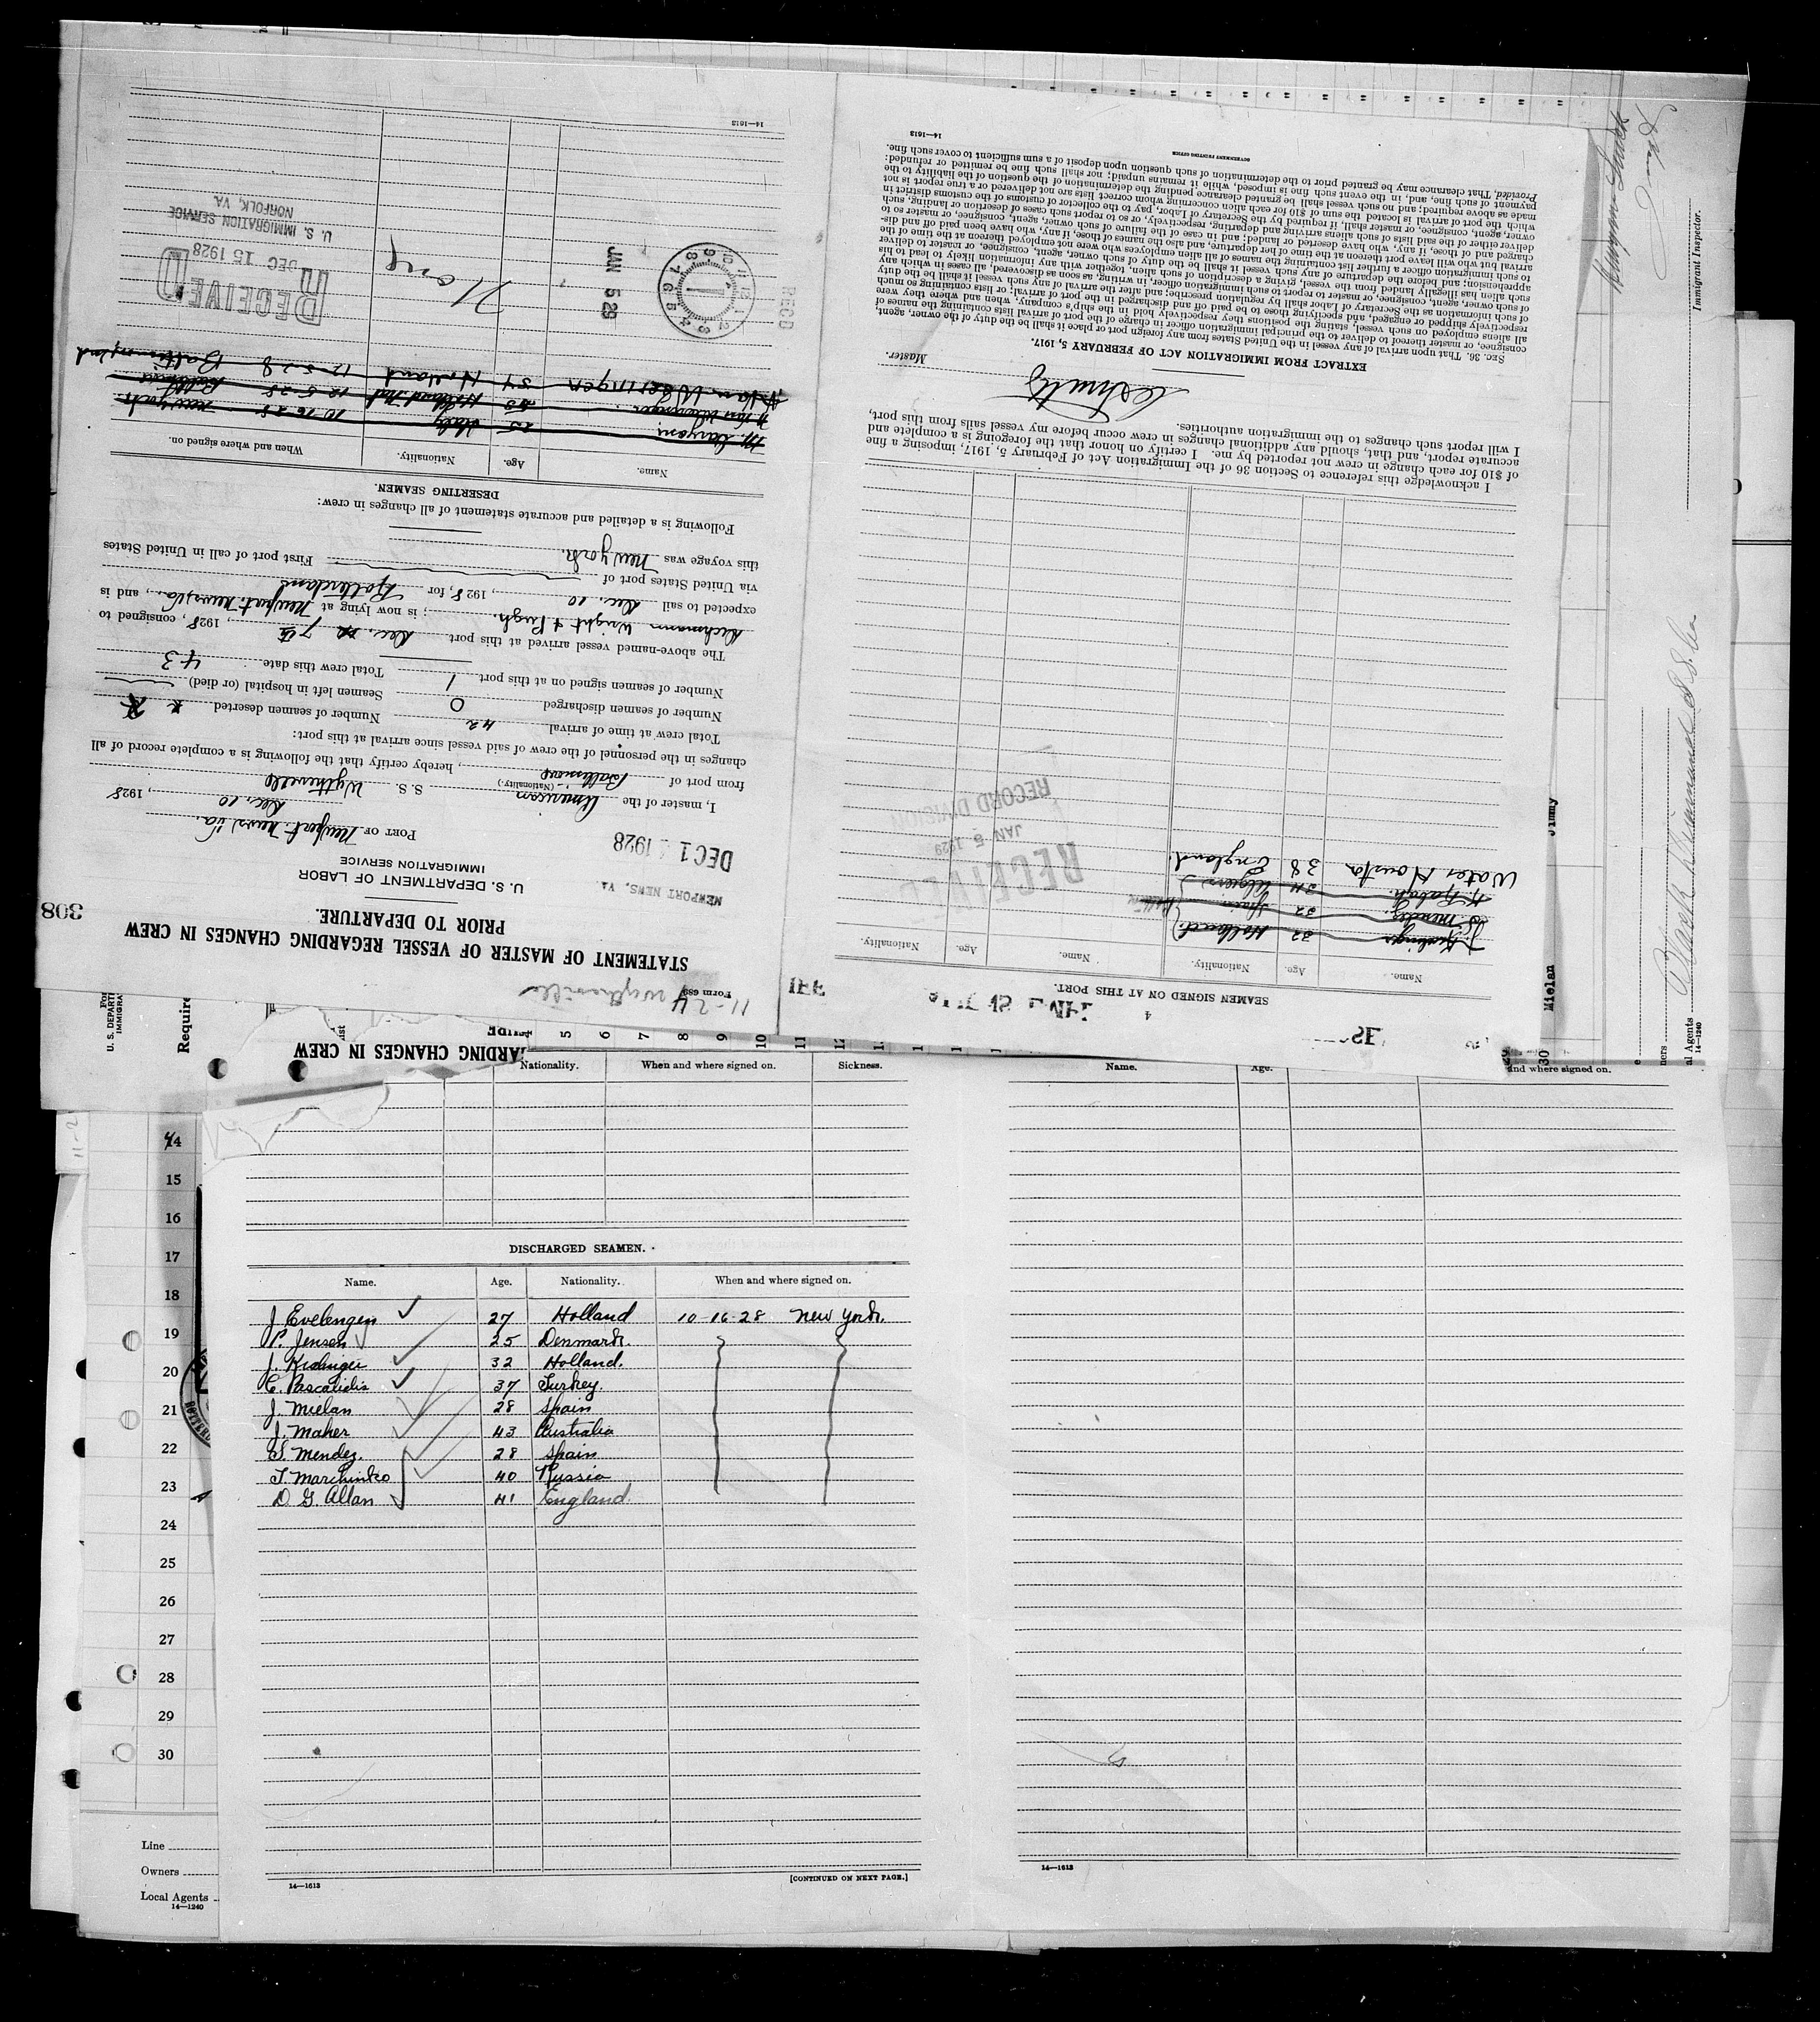 11-24 Wytheville
Form 689
STATEMENT OF MASTER OF VESSEL REGARDING CHANGES IN CREW
PRIOR TO DEPARTURE.
308
U. S. DEPARTMENT OF LABOR
IMMIGRATION SERVICE
NEWPORT NEWS, VA
DEC 1 1928
PORT OF Newport News, Va.
Dec. 10, 1928
I, master of the American S. S. Wytheville
(Nationality.)
from port of Baltimore, hereby certify that the following is a complete record of all
changes in the personnel of the crew of said vessel since arrival at this port:
Total crew at time of arrival 42 Number of seamen deserted
Number of seamen discharged 0 Seamen left in hospital (or died)
Number of seamen signed on at this port 1 Total crew this date 43
The above-named vessel arrived at this port Dec. 7th, 1928, consigned to
Dichmann Wright & Pugh; is now lying at Newport News, Va., and is
expected to sail Dec. 10, 1928, for Rotterdam
via United States port of First port of call in United States
this voyage was New York.
Following is a detailed and accurate statement of all changes in crew:
DESERTING SEAMEN.
Name. Age. Nationality. When and where signed on.
25 Italy 10-16-28 New York
12-5-28
A Van Weeringen 54 Holland 12-5-28 Baltimore
None
RECD JAN 5 29
RECEIVED
DEC 15 1928
U. S. IMMIGRATION SERVICE
NORFOLK, VA.
14—1613
SEAMEN SIGNED ON AT THIS PORT.
Name. Age. Nationality. Name. Age. Nationality.
32 Holland
S. Mendez 32 Spain
24 Algiers
Water Houston 38 England.
RECEIVED
JAN 5 1929
RECORD DIVISION
I acknowledge this reference to Section 36 of the Immigration Act of February 5, 1917, imposing a fine
of $10 for each change in crew not reported by me. I certify on honor that the foregoing is a complete and
accurate report, and that, should any additional changes in crew occur before my vessel sails from this port,
I will report such changes to the immigration authorities.
Master.
EXTRACT FROM IMMIGRATION ACT OF FEBRUARY 5, 1917.
SEC. 36. That upon arrival of any vessel in the United States from any foreign port or place it shall be the duty of the owner, agent,
consignee, or master thereof to deliver to the principal immigration officer in charge of the port of arrival lists containing the names of
all aliens employed on such vessel, stating the positions they respectively hold in the ship's company, when and where they were
respectively shipped or engaged, and specifying those to be paid off and discharged in the port of arrival; or lists containing so much
of such information as the Secretary of Labor shall by regulation prescribe; and after the arrival of any such vessel it shall be the duty
of such owner, agent, consignee, or master to report to such immigration officer, in writing, as soon as discovered, all cases in which any
such alien has illegally landed from the vessel, giving a description of such alien, together with any information likely to lead to his
apprehension; and before the departure of any such vessel it shall be the duty of such owner, agent, consignee, or master to deliver
to such immigration officer a further list containing the names of all alien employees who were not employed thereon at the time of the
arrival but who will leave port thereon at the time of her departure, and also the names of those, if any, who have been paid off and dis-
charged and of those, if any, who have deserted or landed; and in case of the failure of such owner, agent, consignee, or master so to
deliver either of the said lists of such aliens arriving and departing, respectively, or so to report such cases of desertion or landing, such
owner, agent, consignee, or master shall, if required by the Secretary of Labor, pay to the collector of customs of the customs district in
which the port of arrival is located the sum of $10 for each alien concerning whom correct lists are not delivered or a true report is not
made as above required; and no such vessel shall be granted clearance pending the determination of the question of the liability to the
payment of such fine, and, in the event such fine is imposed, while it remains unpaid; nor shall such fine be remitted or refunded:
Provided, That clearance may be granted prior to the determination of such question upon deposit of a sum sufficient to cover such fine.
GOVERNMENT PRINTING OFFICE
14—1613
Immigrant Inspector.
al Agents
14—1240
Jimmy
Mielan
30
U. S. DEPARTI
IMMIGRA
Require
ARDING CHANGES IN CREW
4 5 6 7 8 9 10 11 12
Nationality. When and where signed on. Sickness.
Name. Age. and where signed on.
DISCHARGED SEAMEN.
Name. Age. Nationality. When and where signed on.
J Evelengen 27 Holland 10-16-28 New York.
P. Jensen 25 Denmark.
J. Kidnigie 32 Holland.
C. Pascalidis 37 Turkey.
J. Mielan 28 Spain
J. Maher 43 Australia
S. Mendez. 28 Spain
T. Marchinko 40 Russia
D. G. Allan 41 England.
14—1613
[CONTINUED ON NEXT PAGE.]
14—1613
14
15
16
17
18
19
20
21
22
23
24
25
26
27
28
29
30
Line
Owners
Local Agents
14—1240